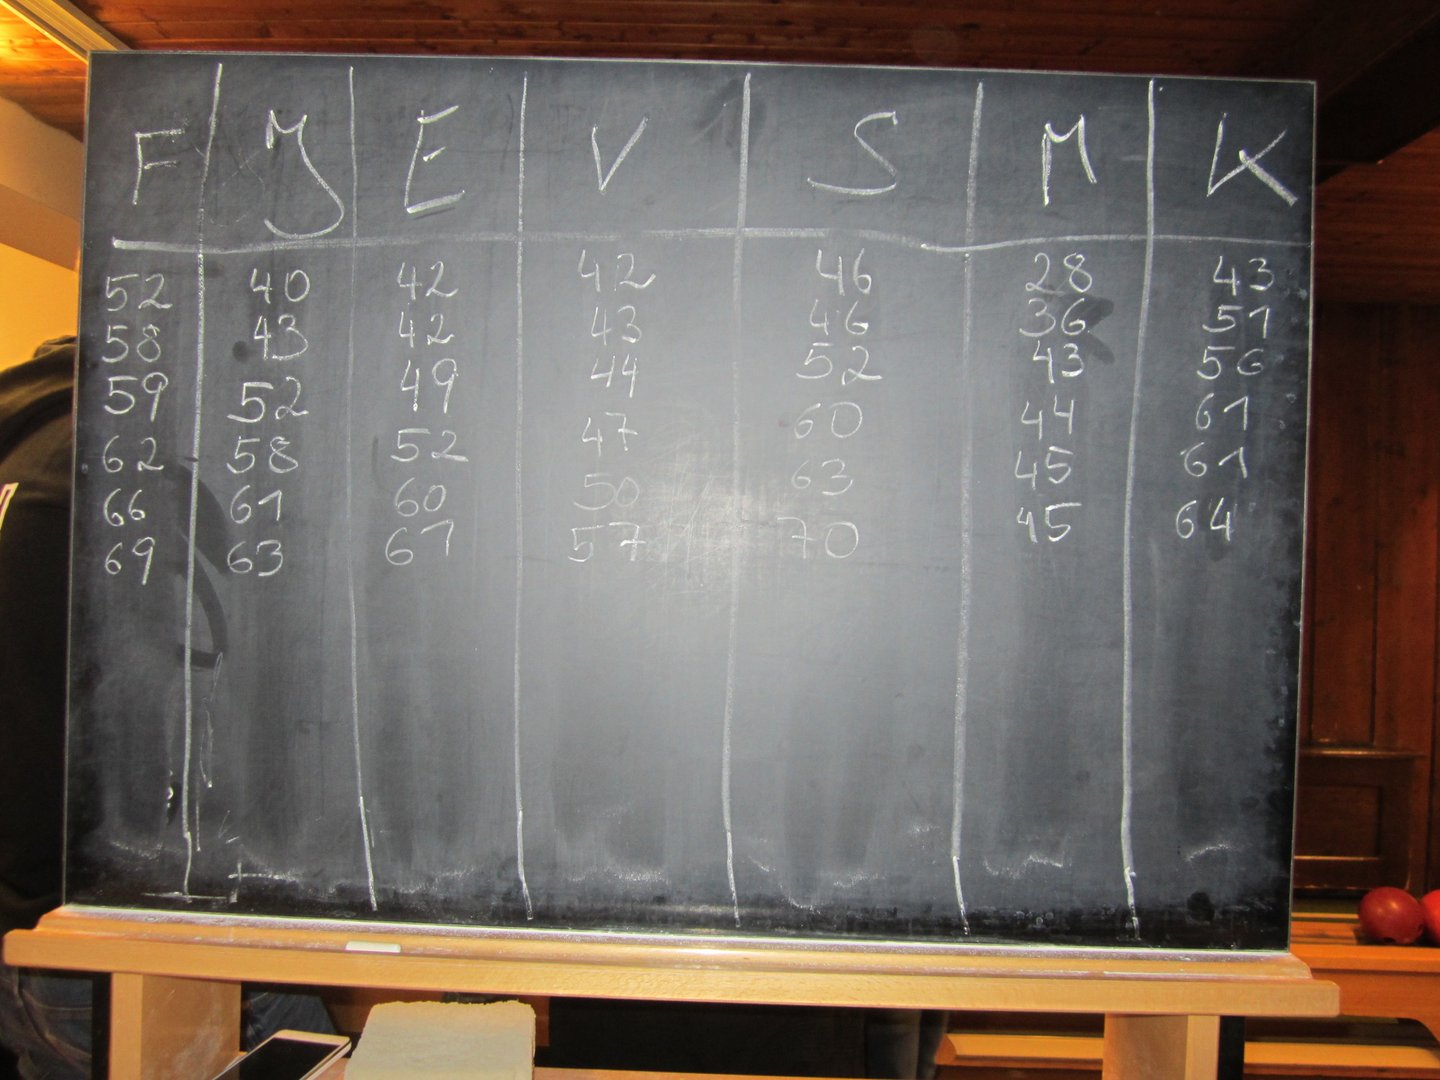 F J E V S M K
52 40 42 42 46 28 43
58 43 42 43 46 36 51
59 52 49 44 52 43 56
62 58 52 47 60 44 61
66 61 60 50 63 45 61
69 63 61 57 70 45 64